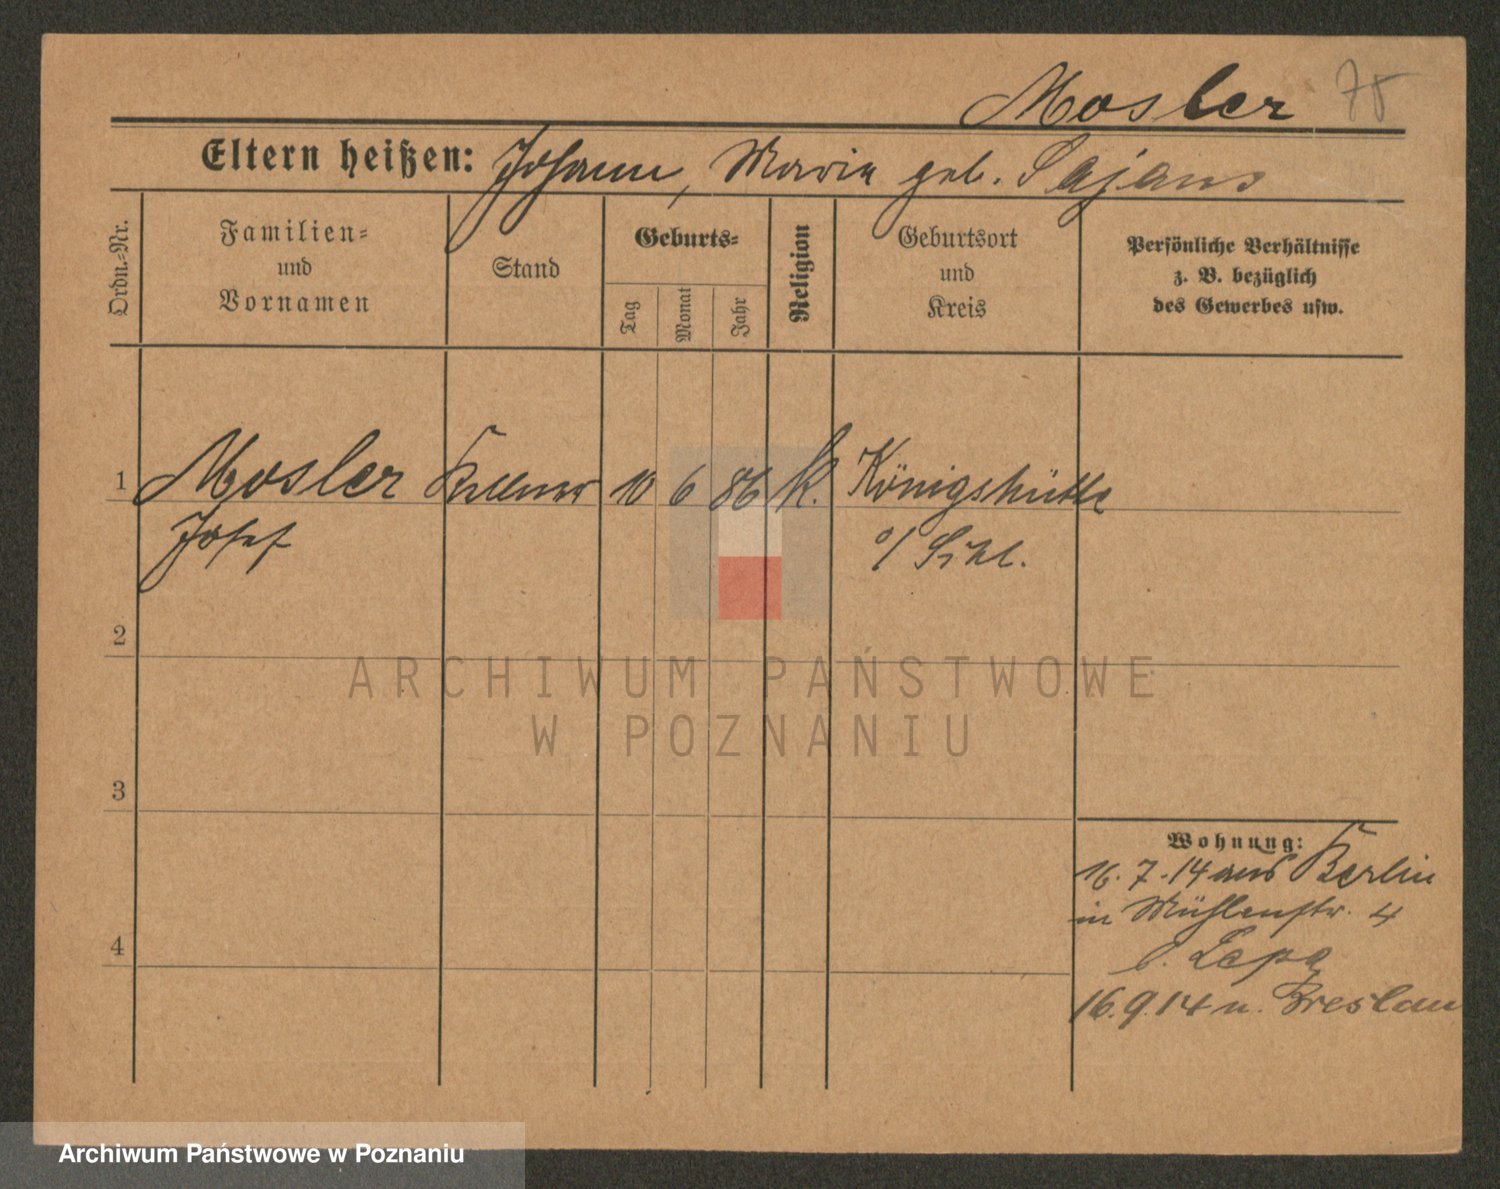 Mosler 75
Eltern heißen: Johann, Maria geb. Sajans
Ordn.=Nr.
Familien=
und
Vornamen
Stand
Geburts=
Tag
Monat
Jahr
Religion
Geburtsort
und
Kreis
Persönliche Verhältnisse
z. B. bezüglich
des Gewerbes usw.
1 Mosler Kellner 10 6 86 K. Königshütte
Josef o/ Schl.
2
3
4
Wohnung:
16.7.14 aus Berlin
in Mühlenstr. 4
b. Lepa
16.9.14 n. Breslau
ARCHIWUM PAŃSTWOWE
W POZNANIU
Archiwum Państwowe w Poznaniu